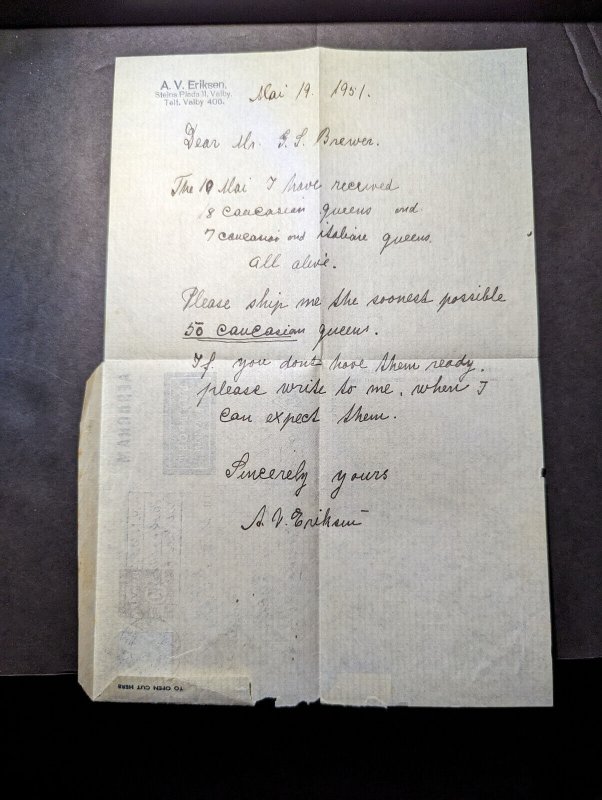 A. V. Eriksen.
Steins Plads II. Valby.
Telf. Valby 406.
Mai 19. 1951.
Dear Mr. G. S. Brewer.
The 19 Mai I have received
18 caucasian queens and
7 caucasian and italiane queens.
All alive.
Please ship me the soonest possible
50 caucasian queens.
If you dont have them ready.
please write to me. when I
can expect them.
Sincerely yours
A. V. Eriksen
AEROGRAM
TO OPEN CUT HERE